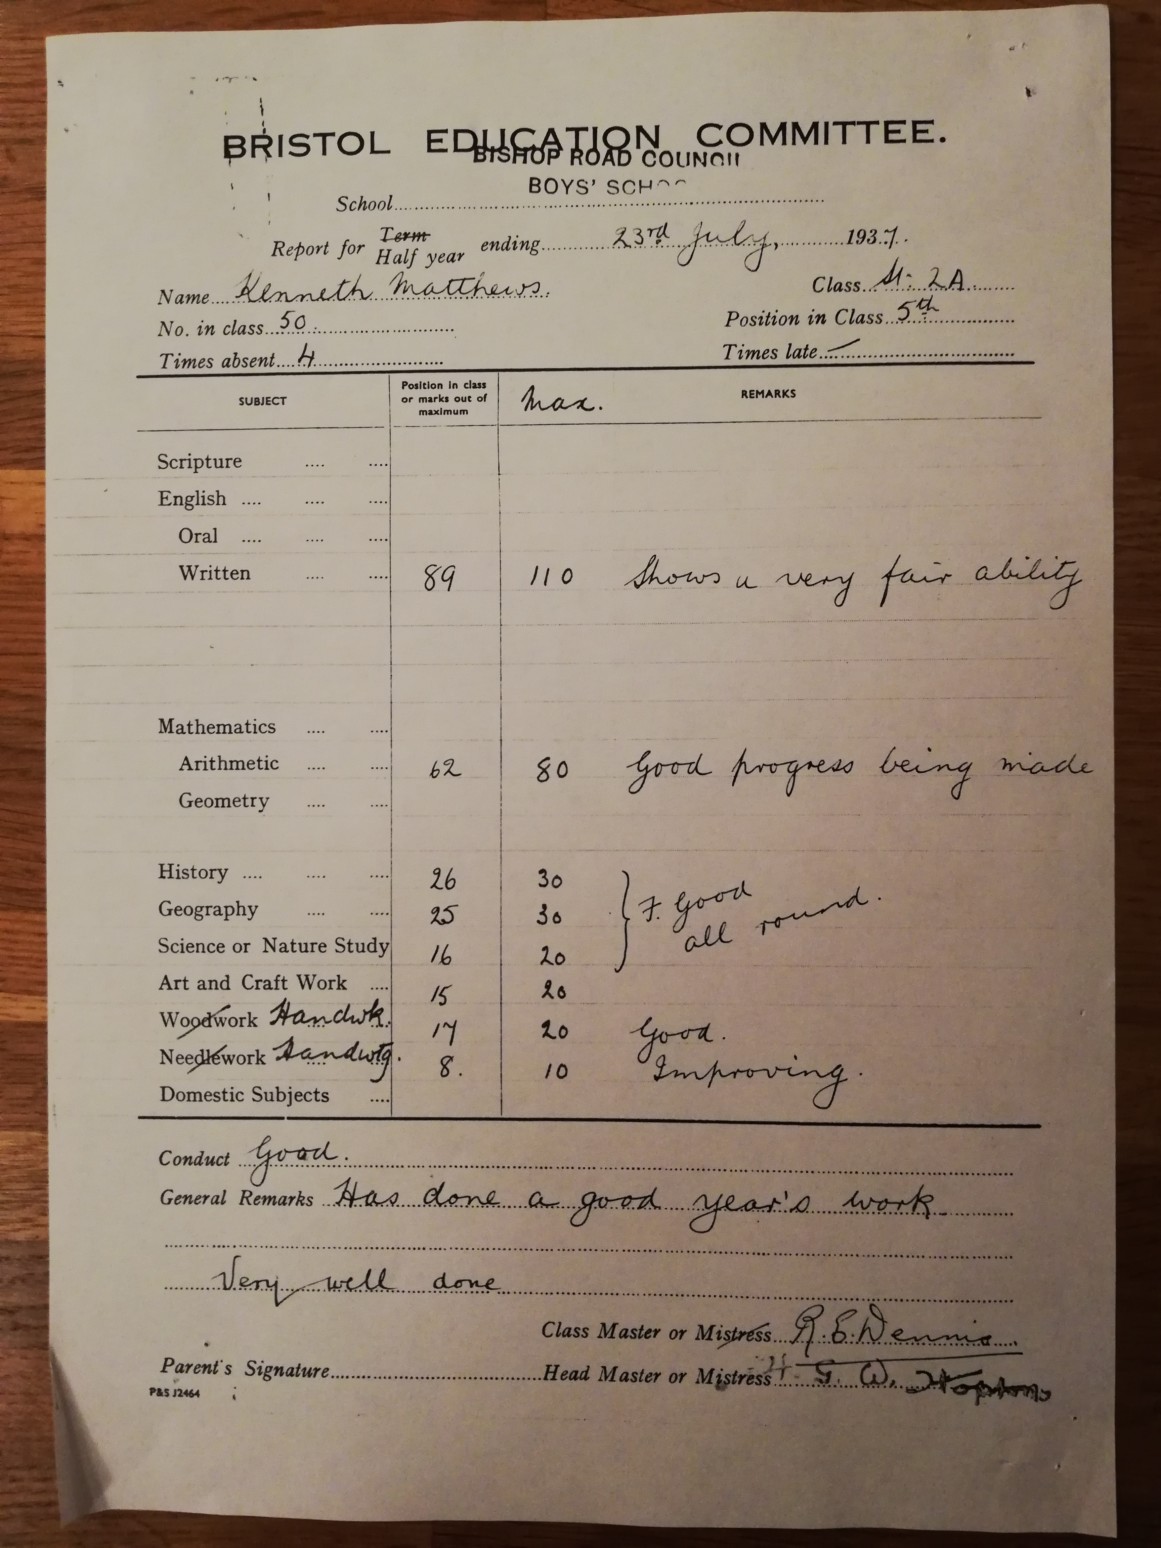 BRISTOL EDUCATION COMMITTEE.
BISHOP ROAD COUNCIL
BOYS' SCHOO
School
Report for Term Half year ending 23rd July, 1937.
Name Kenneth Matthews. Class St. 2A
No. in class 50 Position in Class 5th
Times absent 4 Times late —
SUBJECT Position in class or marks out of maximum Max. REMARKS
Scripture
English
Oral
Written 89 110 Shows a very fair ability
Mathematics
Arithmetic 62 80 Good progress being made
Geometry
History 26 30
Geography 25 30 } F. Good
Science or Nature Study 16 20 all round.
Art and Craft Work 15 20
Woodwork Handwk. 17 20 Good.
Needlework Handwtg. 8. 10 Improving.
Domestic Subjects
Conduct Good.
General Remarks Has done a good year's work
Very well done
Class Master or Mistress R. E. Dennis
Parent's Signature Head Master or Mistress G. W.
P&S J2464